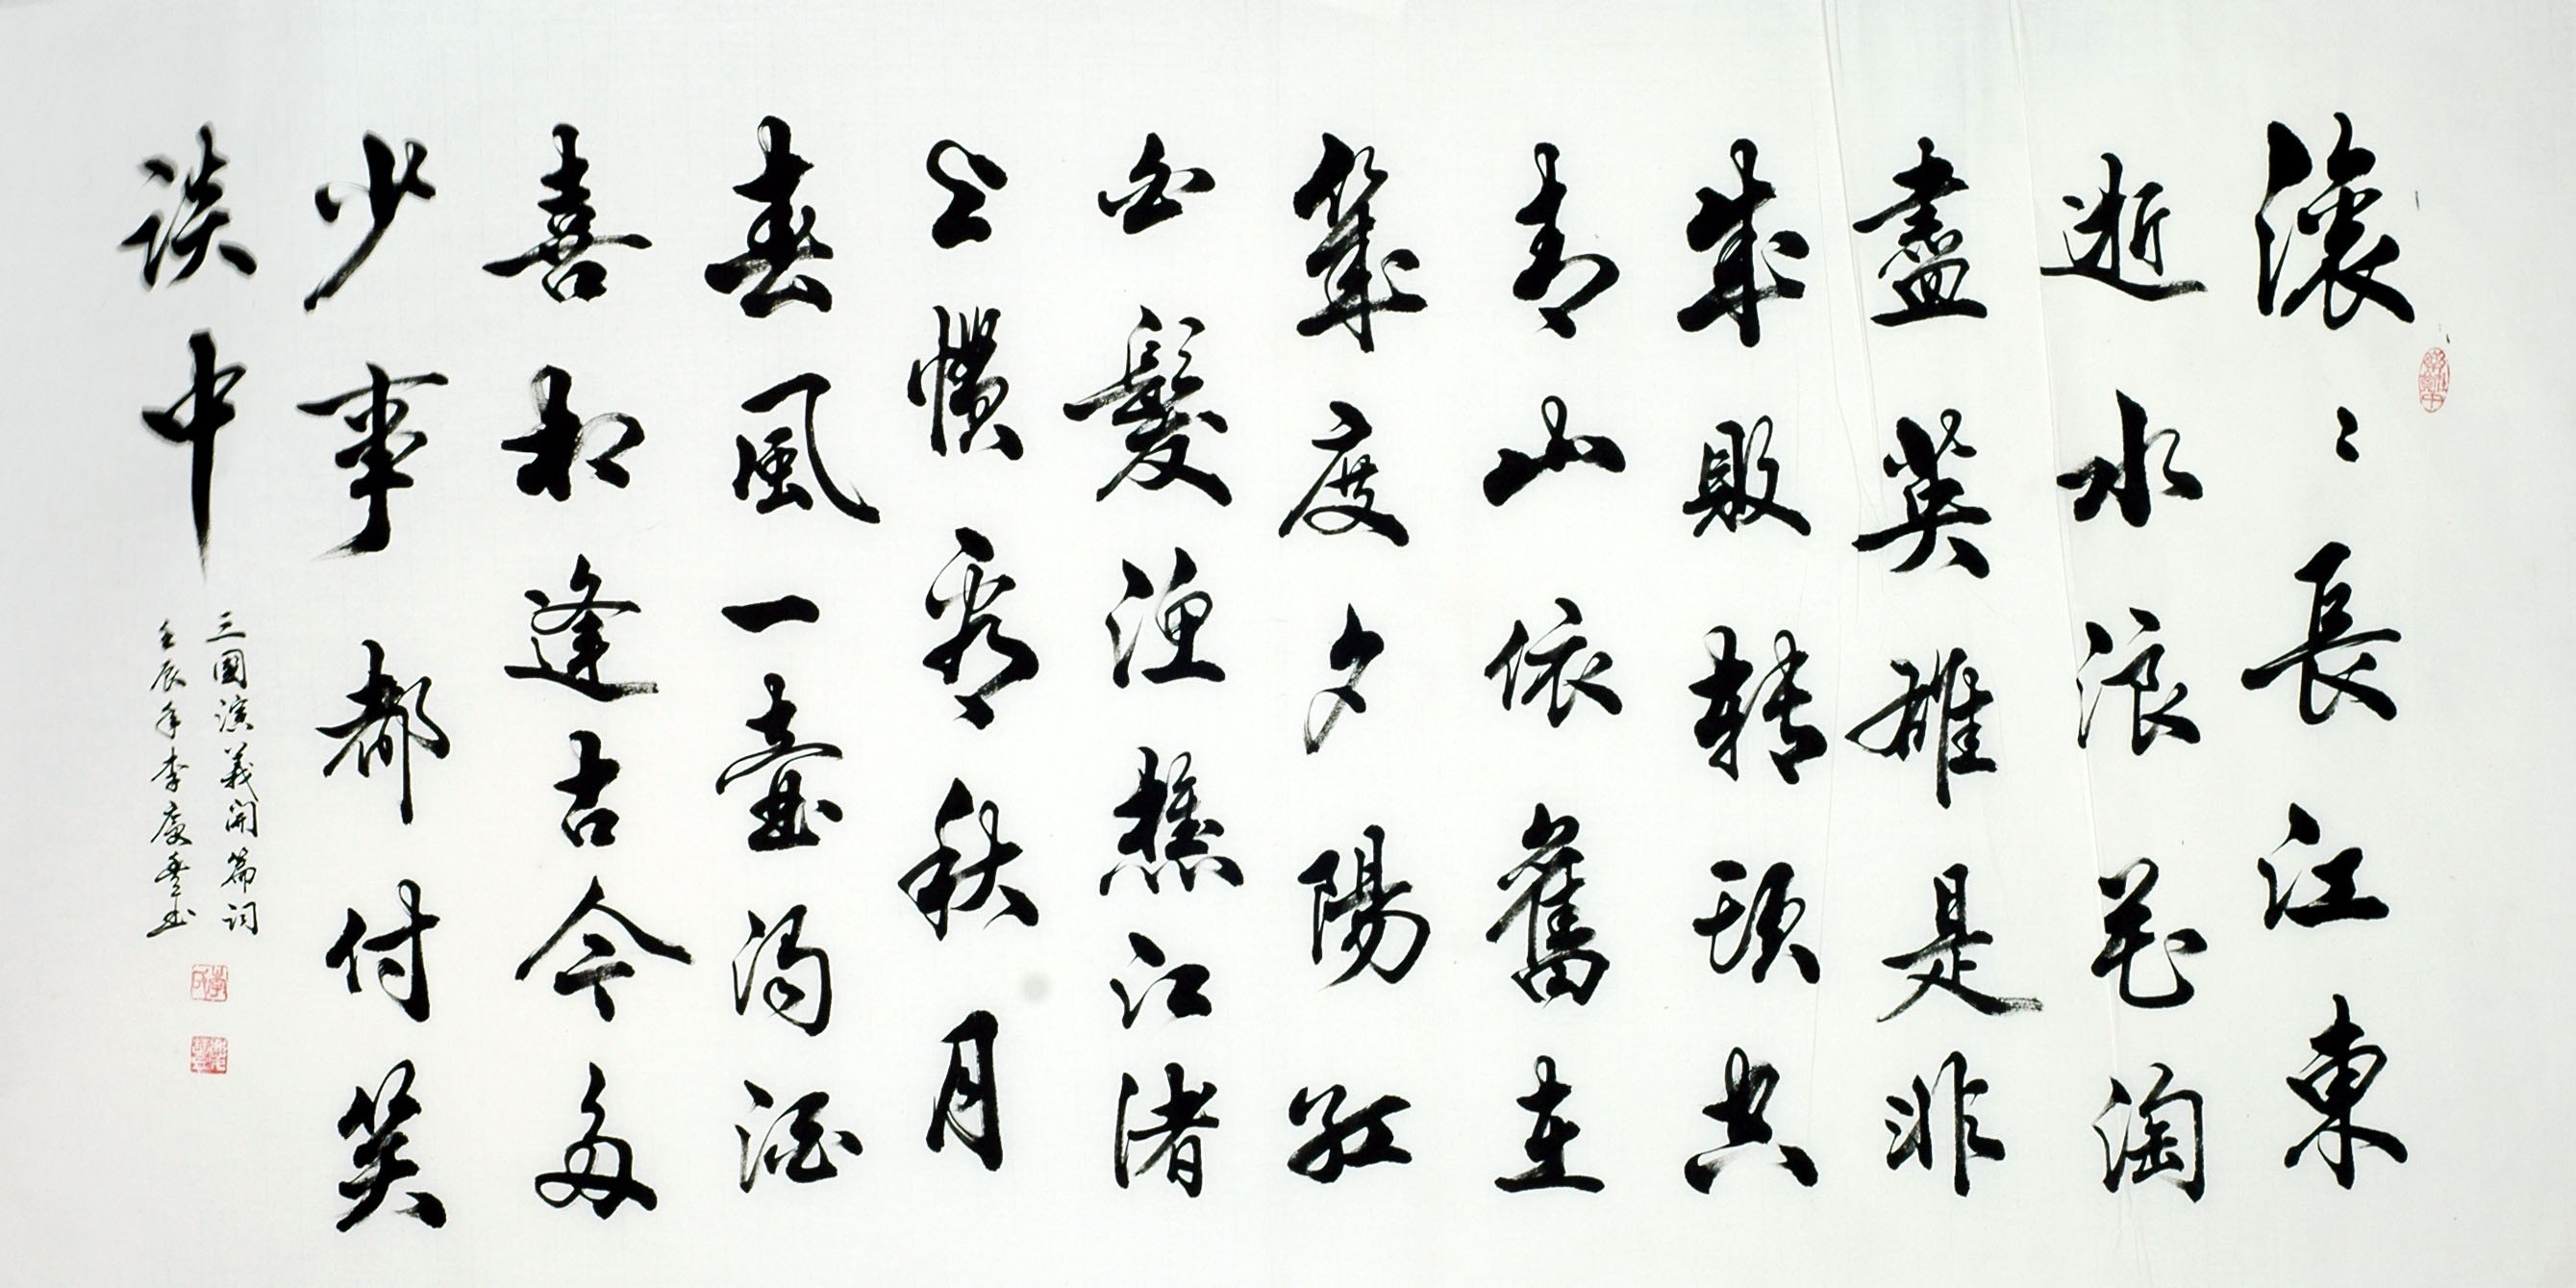 滾〻長江東
逝水浪花淘
盡英雄是非
成敗轉頭空
青山依舊在
幾度夕陽紅
白髮漁樵江渚
上慣看秋月
春風一壺濁酒
喜相逢古今多
少事都付笑
談中
三國演義開篇詞
壬辰年李慶豐書